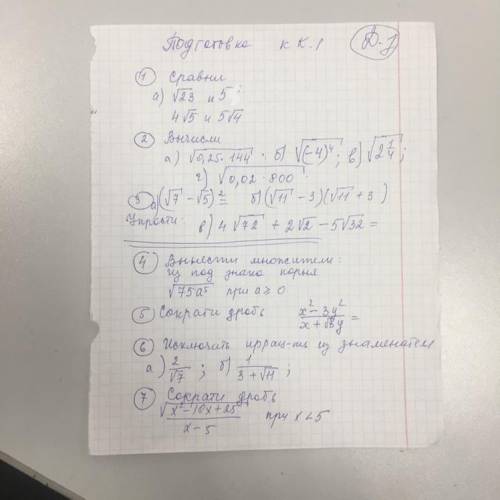 Подготовка к К.1 Д.з
1 Сравни
а) √23 и 5;
4√5 и 5√4
2 Вычисли
а) √0,25·144 · б) √(-4)⁴; в) √2 1/4;
г) √0,02·800
3 а) (√7 - √5)² = б) (√11 - 3)(√11 + 3)
Упрости: в) 4√72 + 2√2 - 5√32 =
4 Вынести множители:
из под знака корня
√75a⁵ при a ≥ 0
5 Сократи дробь (x² - 3y²)/(x + √3y) =
6 Исключить иррац-ть из знаменателя
а) 2/√7; б) 1/(3 + √11);
7 Сократи дробь
√(x² - 10x + 25)/(x - 5) при x < 5